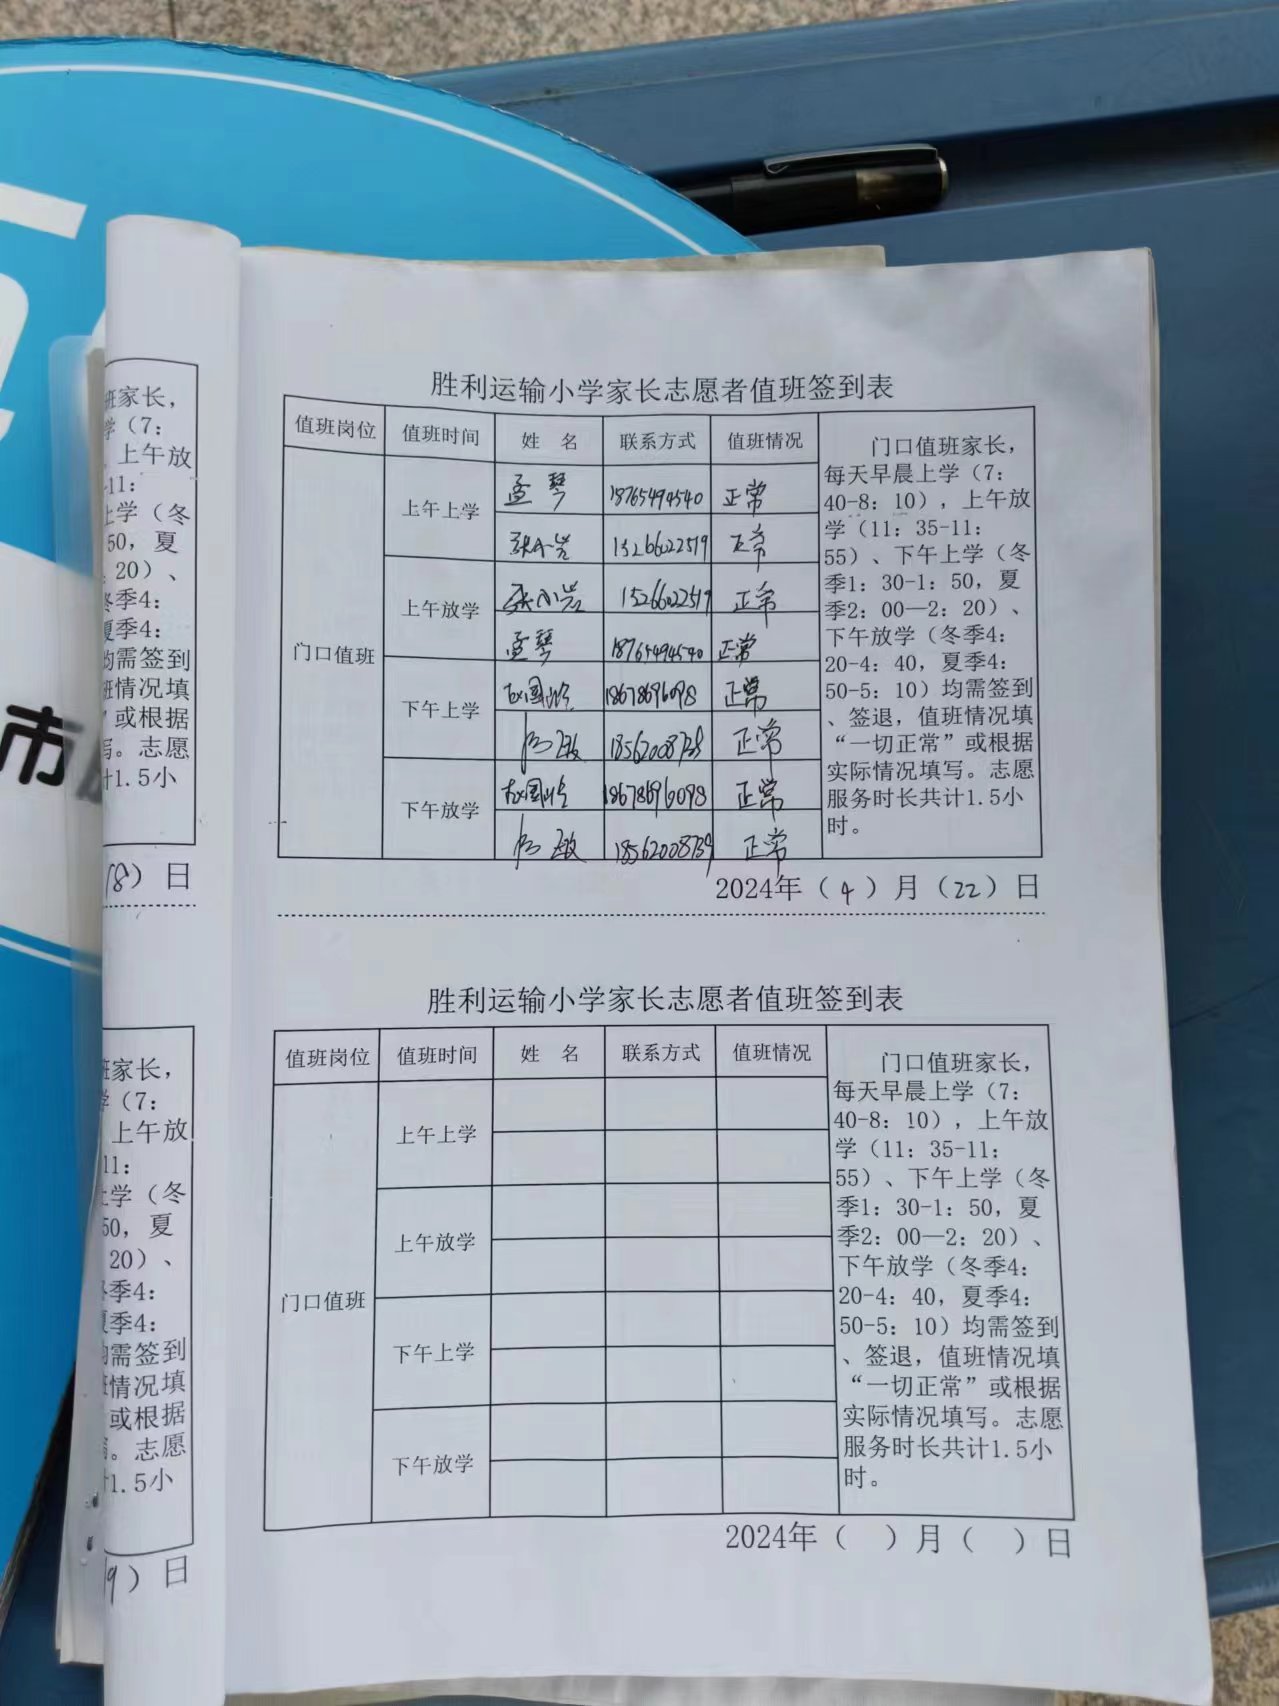 市
班家长，
学（7：
，上午放
-11：
上学（冬
50，夏
：20）、
冬季4：
夏季4：
均需签到
班情况填
”或根据
写。志愿
计1.5小
18）日
班家长，
学（7：
上午放
11：
上学（冬
50，夏
20）、
冬季4：
夏季4：
均需签到
班情况填
”或根据
写。志愿
计1.5小
19）日
胜利运输小学家长志愿者值班签到表
值班岗位 值班时间 姓 名 联系方式 值班情况
门口值班
上午上学
孟琴 18765494540 正常
张小岩 15266022519 正常
上午放学
张小岩 15266022519 正常
孟琴 18765494540 正常
下午上学
赵国 18678696098 正常
敏 正常
下午放学
赵国 18678696098 正常
敏 正常
门口值班家长，
每天早晨上学（7：
40-8：10），上午放
学（11：35-11：
55）、下午上学（冬
季1：30-1：50，夏
季2：00—2：20）、
下午放学（冬季4：
20-4：40，夏季4：
50-5：10）均需签到
、签退，值班情况填
“一切正常”或根据
实际情况填写。志愿
服务时长共计1.5小
时。
2024年（4）月（22）日
胜利运输小学家长志愿者值班签到表
值班岗位 值班时间 姓 名 联系方式 值班情况
门口值班
上午上学
上午放学
下午上学
下午放学
门口值班家长，
每天早晨上学（7：
40-8：10），上午放
学（11：35-11：
55）、下午上学（冬
季1：30-1：50，夏
季2：00—2：20）、
下午放学（冬季4：
20-4：40，夏季4：
50-5：10）均需签到
、签退，值班情况填
“一切正常”或根据
实际情况填写。志愿
服务时长共计1.5小
时。
2024年（ ）月（ ）日